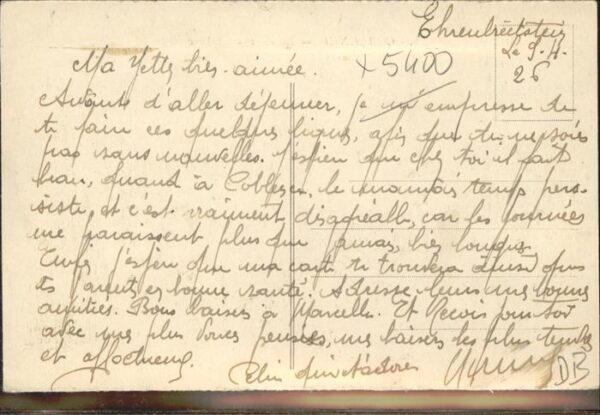 Ehrenbreitstein
Le 9-4-
26
Ma Yette bien-aimée.
x5400
Avant d'aller déjeuner, je m'empresse de
te faire ces quelques lignes, afin que tu ne sois
pas sans nouvelles. J'espère que chez toi il fait
beau, quand à Coblence, le mauvais temps per-
siste, et c'est vraiment désagréable, car les journées
me paraissent plus que jamais, bien longues.
Enfin j'espère que ma carte te trouvera ainsi que
tes parents en bonne santé. Adresse-leurs mes bonnes
amitiés. Bons baisers à Marcelle. Et Reçois pour toi
avec mes plus douces pensées, mes baisers les plus tendres
et affectueux.
DB